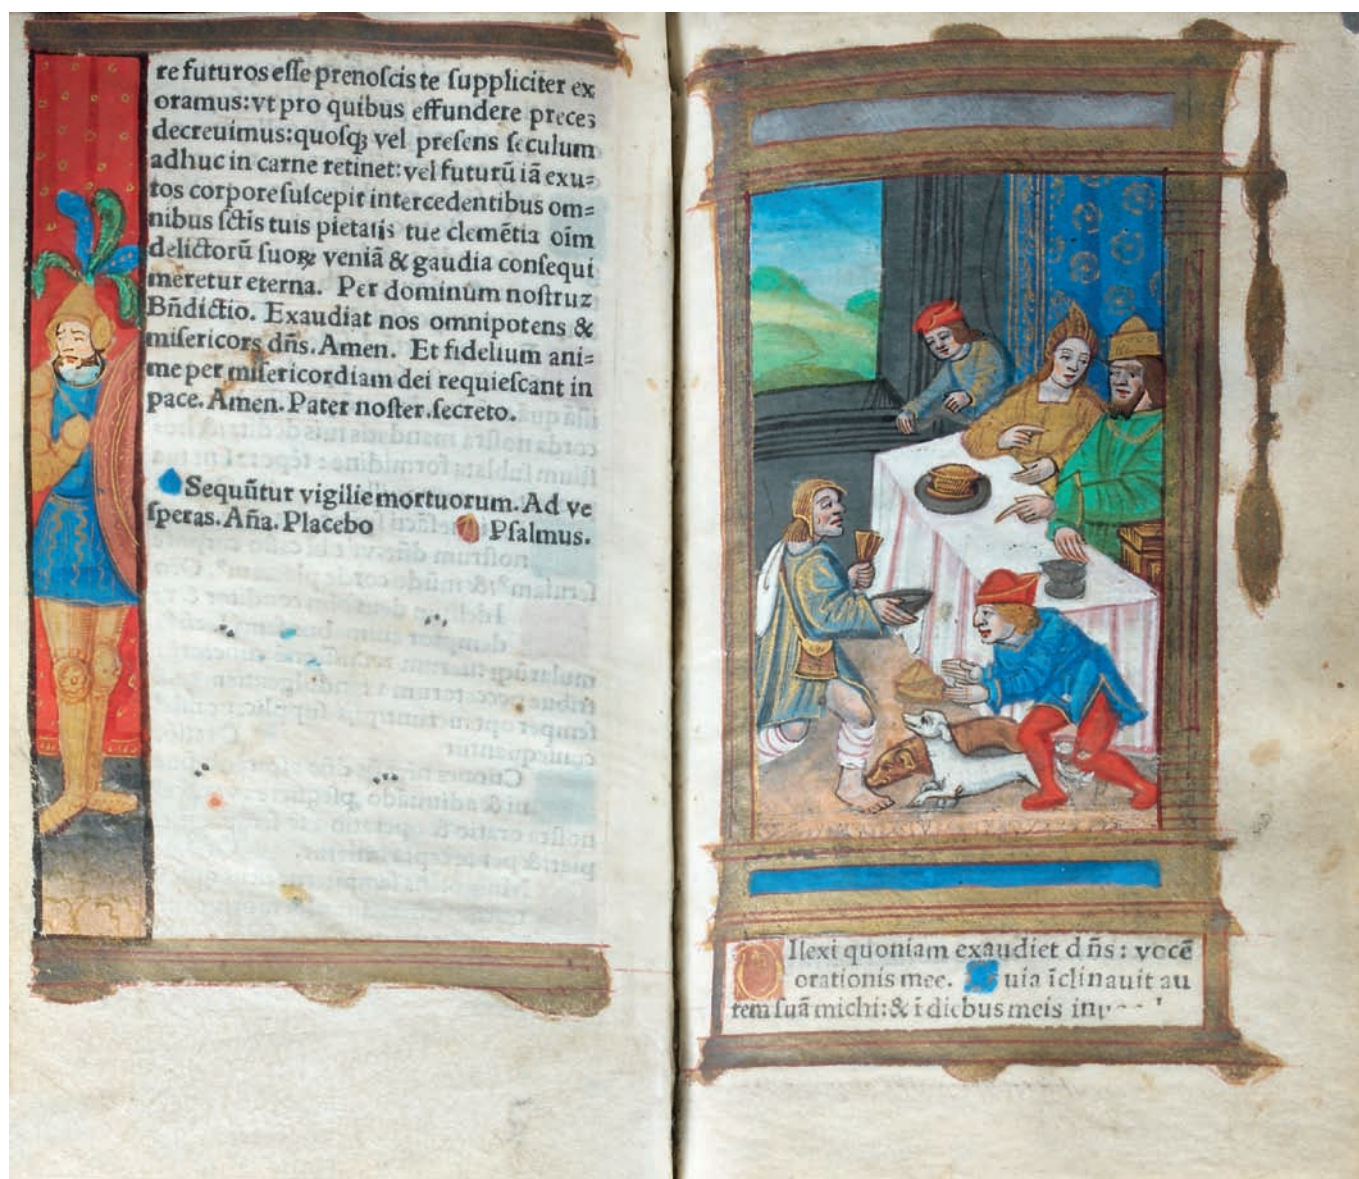 re futuros esse prenoscis te suppliciter ex
oramus: vt pro quibus effundere preces
decreuimus: quosqꝫ vel presens seculum
adhuc in carne retinet: vel futurū iā exu=
tos corpore suscepit intercedentibus om=
nibus sctis tuis pietatis tue clemētia oīm
delictorū suoꝝ veniā & gaudia consequi
meretur eterna. Per dominum nostruz
Bn̄dictio. Exaudiat nos omnipotens &
misericors dn̄s. Amen. Et fidelium ani=
me per misericordiam dei requiescant in
pace. Amen. Pater noster. secreto.
Sequūtur vigilie mortuorum. Ad ve
speras. Aña. Placebo Psalmus.
Ilexi quoniam exaudiet dn̄s: vocē
orationis mee. uia īclinauit au
rem suā michi: & ī diebus meis